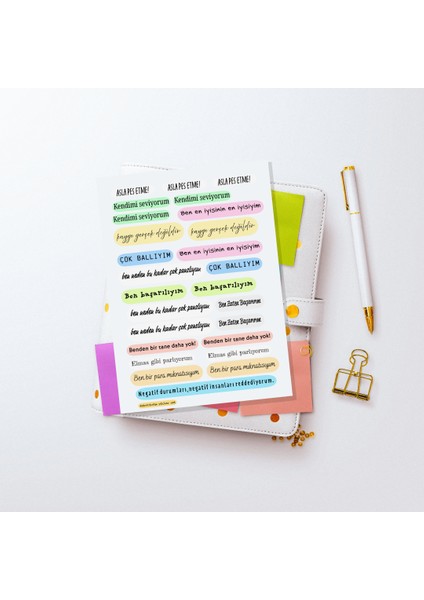 ASLA PES ETME! ASLA PES ETME! ASLA PES ETME!
Kendimi seviyorum Kendimi seviyorum
Kendimi seviyorum Ben en iyisinin en iyisiyim
kaygı gerçek değildir kaygı gerçek değildir
ÇOK BALLIYIM Ben en iyisinin en iyisiyim
ben neden bu kadar çok şanslıyım ÇOK BALLIYIM
Ben başarılıyım Ben başarılıyım
ben neden bu kadar çok şanslıyım Ben Zaten Başarırım
ben neden bu kadar çok şanslıyım Ben Zaten Başarırım
Benden bir tane daha yok! Benden bir tane daha yok!
Elmas gibi parlıyorum Elmas gibi parlıyorum
Ben bir para mıknatısıyım Ben bir para mıknatısıyım
Negatif durumları, negatif insanları reddediyorum.